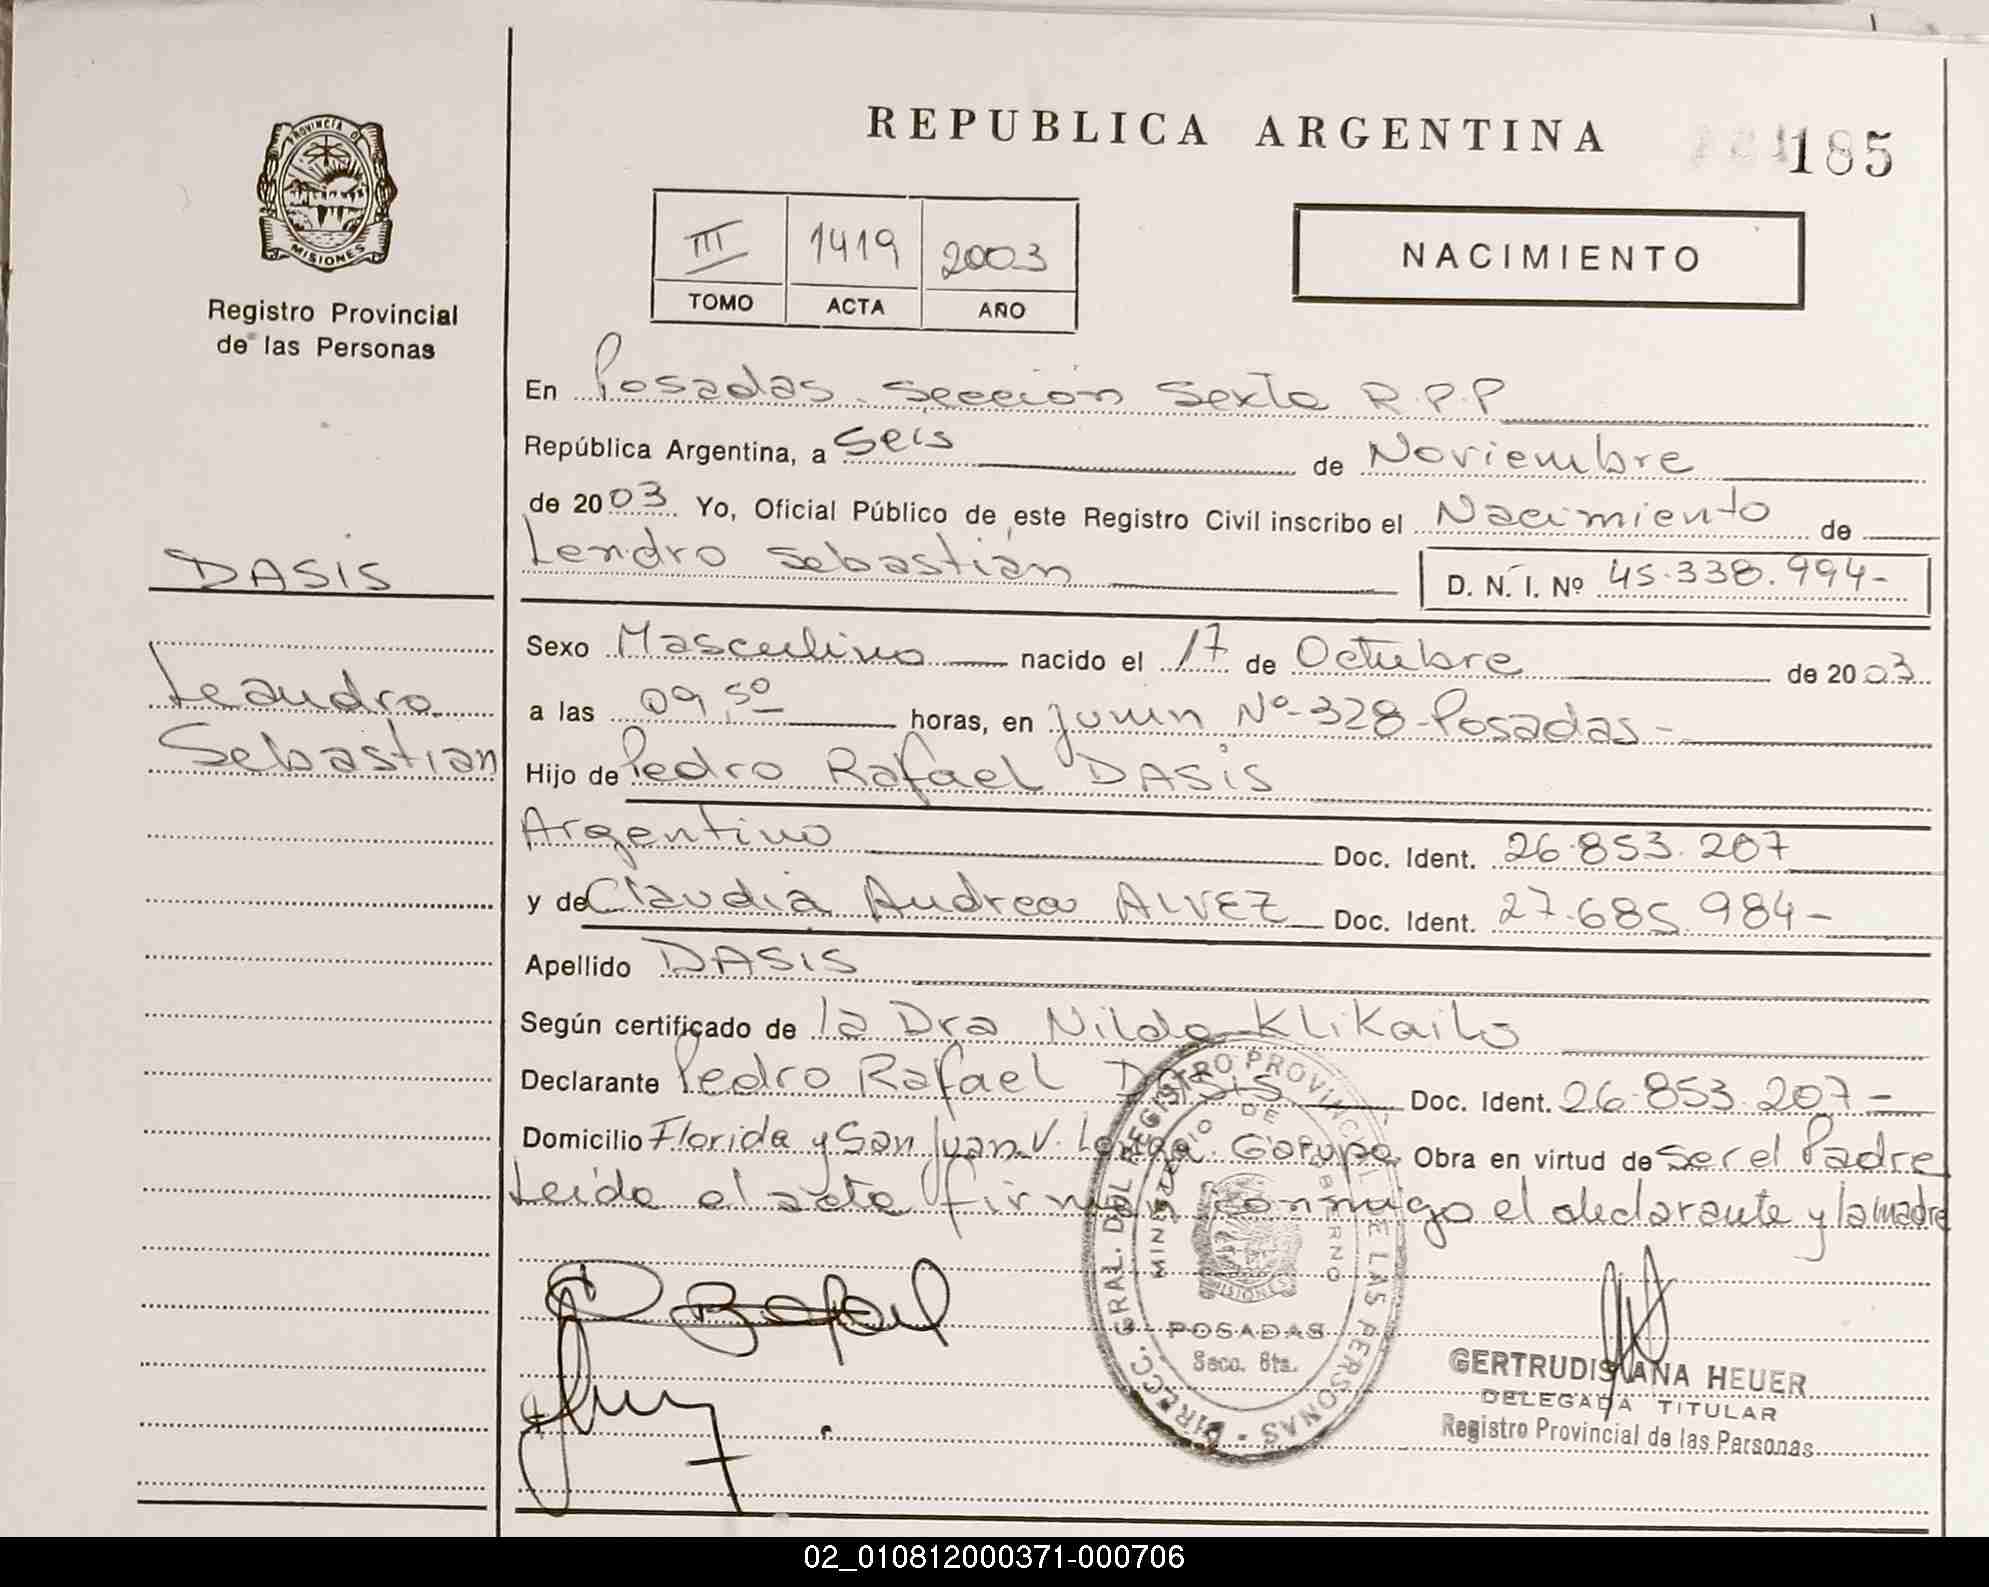 REPUBLICA ARGENTINA
185
PROVINCIA DE
MISIONES
Registro Provincial
de las Personas
III 1419 2003
TOMO ACTA AÑO
NACIMIENTO
En Posadas. Sección Sexta R.P.P
República Argentina, a Seis de Noviembre
de 2003 Yo, Oficial Público de este Registro Civil inscribo el Nacimiento de
Lendro Sebastián D. N. I. Nº 45.338.994-
DASIS
Leandro
Sebastian
Sexo Masculino nacido el 17 de Octubre de 2003
a las 09,50 horas, en Junin Nº-328-Posadas-
Hijo de Pedro Rafael DASIS
Argentino Doc. Ident. 26.853.207
y de Claudia Andrea ALVEZ Doc. Ident. 27.685.984-
Apellido DASIS
Según certificado de la Dra Nilda
Declarante Pedro Rafael Dasis Doc. Ident. 26.853.207-
Domicilio Florida y San Juan V. Garupa Obra en virtud de Ser el Padre
Leida el acta firman conmigo el declarante y la madre
DIRECC. GRAL. DEL REGISTRO PROVINCIAL DE LAS PERSONAS
MINISTERIO DE GOBIERNO
MISIONES
POSADAS
Secc. 6ta.
GERTRUDIS ANA HEUER
DELEGADA TITULAR
Registro Provincial de las Personas
02_010812000371-000706